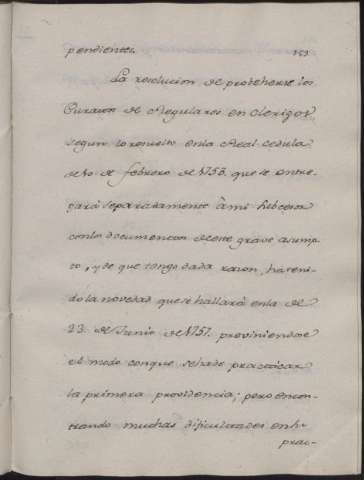 pendientes.
La resolucion de proveherse los
Curatos de Regulares en Clerigos
segun lo resuelto en la Real Cedula
de 1o de febrero de 1753. que se entre-
gará separadamente à mi subcesor
con los documentos de este grave asump-
to, y de que tengo dada razon, ha teni-
do la novedad que se hallará en la de
23. de Junio de 1757. previniendose
el modo con que se ha de practicar
la primera providencia; pero encon-
trando muchas dificultades en la
prac-